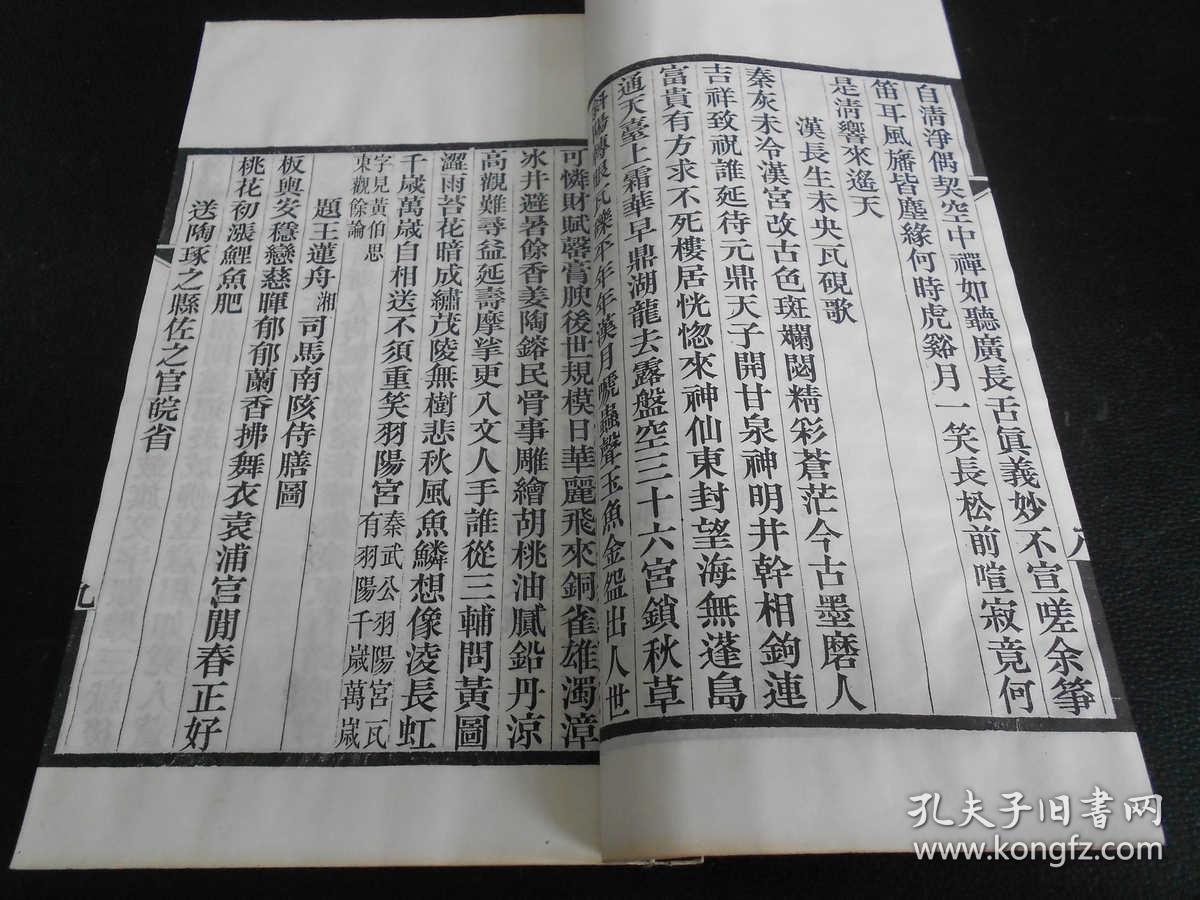 自清淨偶契空中禪如聽廣長舌真義妙不宣嗟余箏
笛耳風旛皆塵緣何時虎谿月一笑長松前喧寂竟何
是清響來遙天
漢長生未央瓦硯歌
秦灰未冷漢宮改古色斑斕閟精彩蒼茫今古墨磨人
吉祥致祝誰延待元鼎天子開甘泉神明井幹相鉤連
富貴有方求不死樓居恍惚來神仙東封望海無蓬島
通天臺上霜華早鼎湖龍去露盤空三十六宮鎖秋草
年年漢月虓蟲聲玉魚金盌出人世
八
可憐財賦罄膏腴後世規模日華麗飛來銅雀雄濁漳
冰井避暑餘香姜陶鎔民骨事雕繪胡桃油膩鉛丹涼
高觀難尋益延壽摩挲更入文人手誰從三輔問黃圖
澀雨苔花暗成繡茂陵無樹悲秋風魚鱗想像淩長虹
千歲萬歲自相送不須重笑羽陽宮秦武公羽陽宮瓦有羽陽千歲萬歲
字見黃伯思東觀餘論
題王蓮舟湘司馬南陔侍膳圖
板輿安穩戀慈暉郁郁蘭香拂舞衣袁浦宮閒春正好
桃花初漲鯉魚肥
送陶琢之縣佐之官皖省
九
孔夫子旧书网
www.kongfz.com